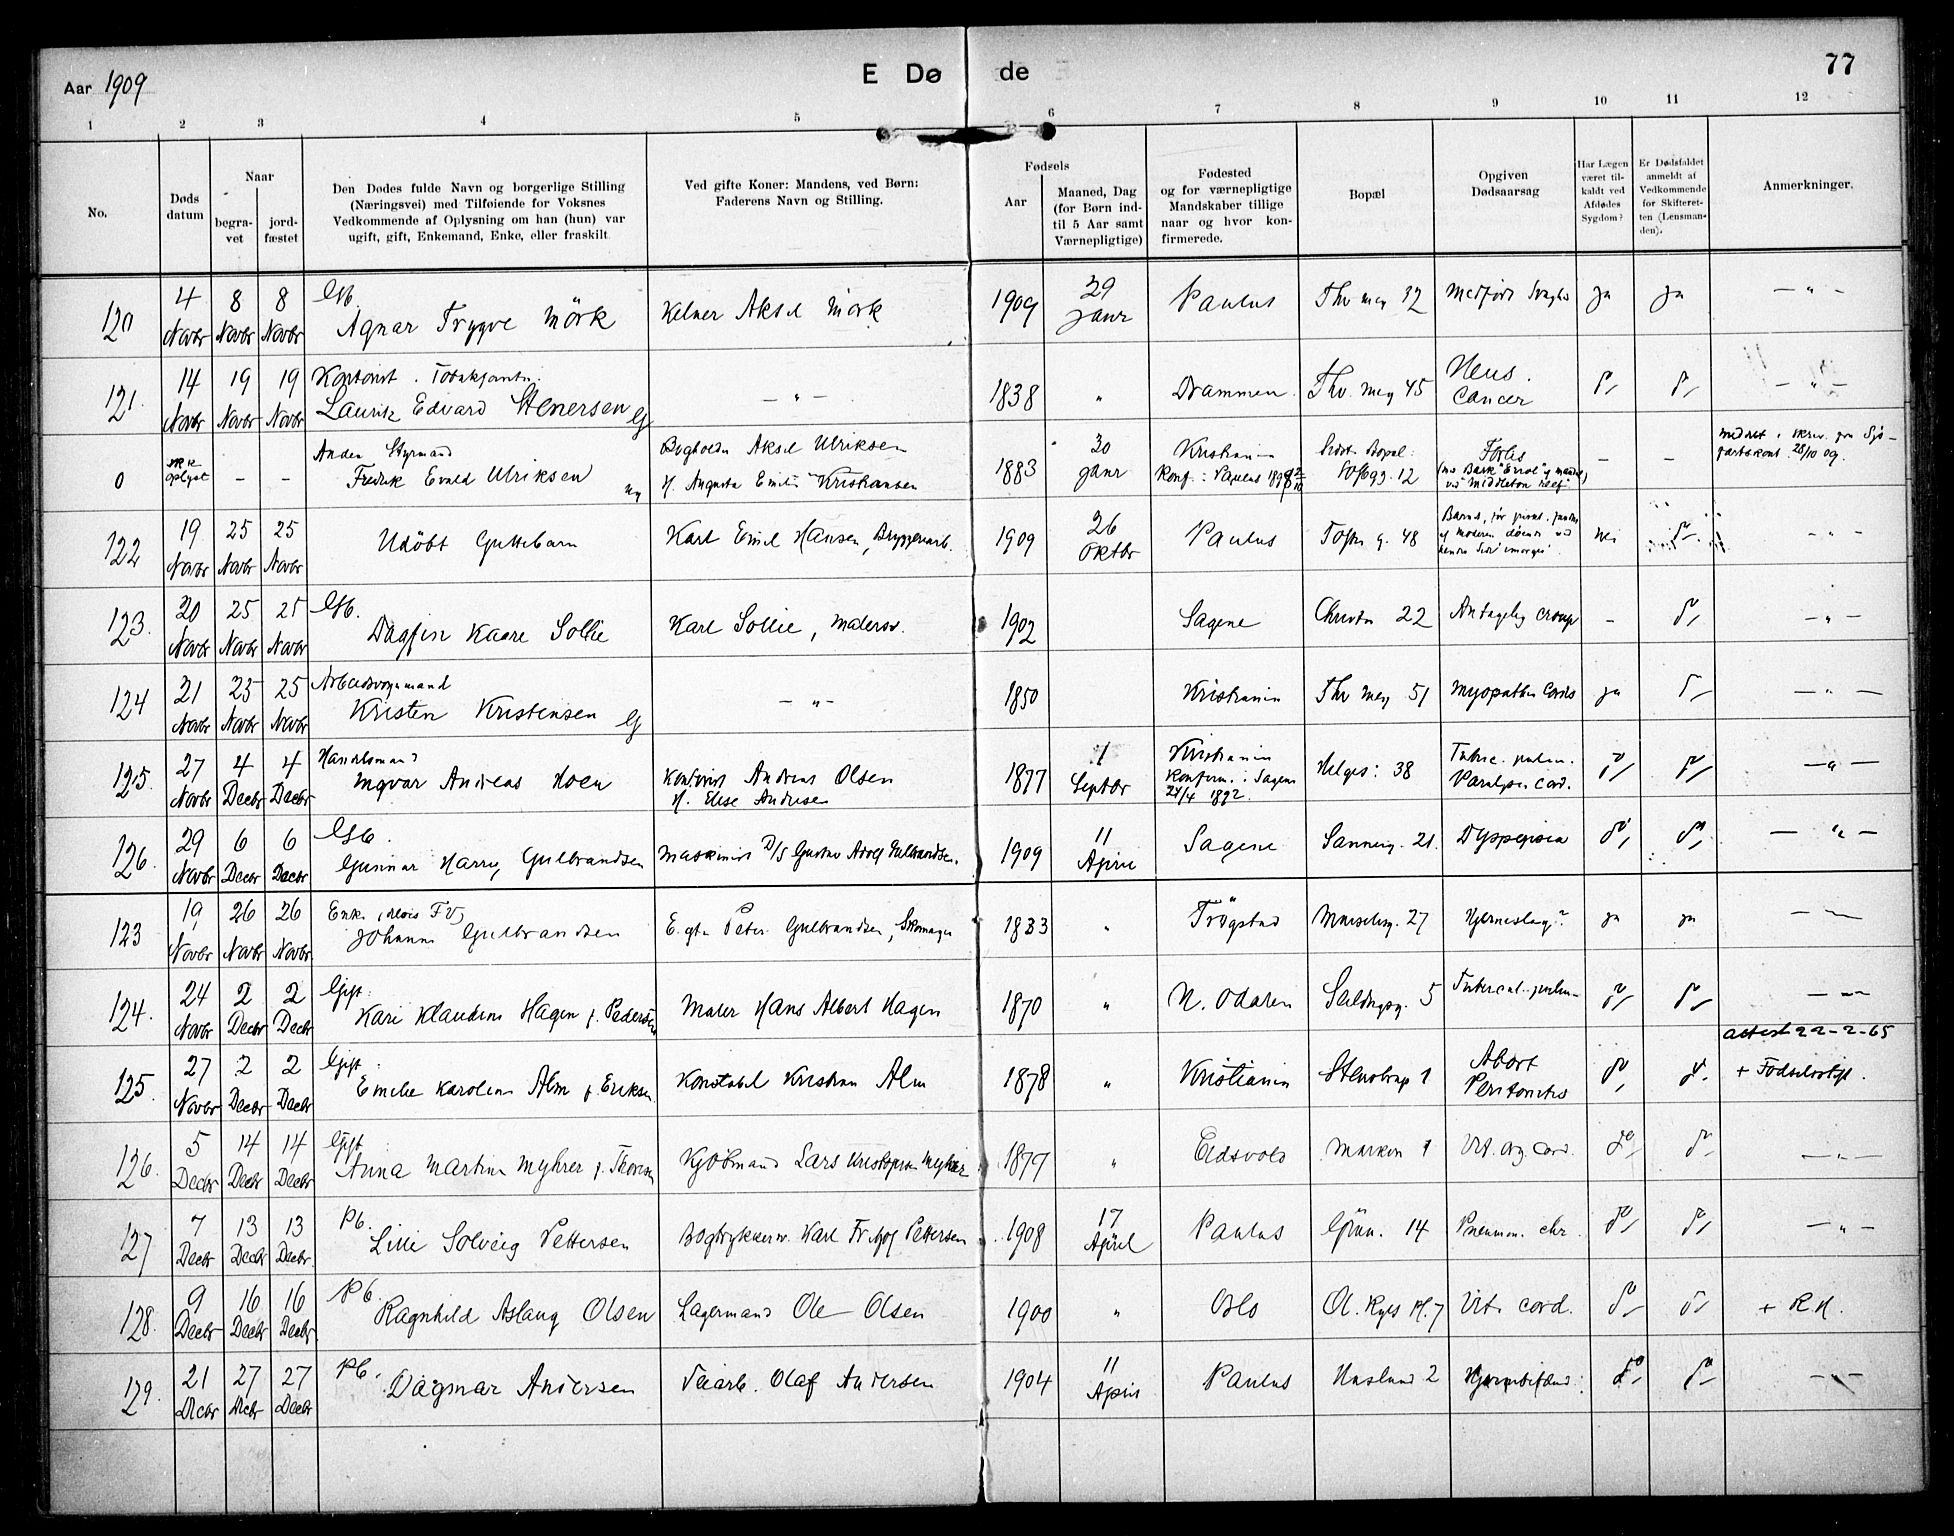 Aar 1909
E Dø de
77
1 2 3 4 5 6 7 8 9 10 11 12
No.
Døds datum
Naar
begra-vet
jord-fæstet
Den Dødes fulde Navn og borgerlige Stilling
(Næringsvei) med Tilføiende for Voksnes
Vedkommende af Oplysning om han (hun) var
ugift, gift, Enkemand, Enke, eller fraskilt
Ved gifte Koner: Mandens, ved Børn:
Faderens Navn og Stilling.
Fødsels
Aar
Maaned, Dag
(for Børn ind-
til 5 Aar samt
Værnepligtige)
Fødested
og for værnepligtige
Mandskaber tillige
naar og hvor kon-
firmerede.
Bopæl
Opgiven
Dødsaarsag
Har Lægen
været til-
kaldt ved
Afdødes
Sygdom?
Er Dødsfaldet
anmeldt af
Vedkommende
for Skifteret-
ten (Lensman-
den).
Anmerkninger.
120 4 Novbr 8 Novbr 8 Novbr Agnar Trygve Mörk Kelner Aksel Mörk 1909 29 Janr Paulus Thv mey 32 Medfödt Svaghed ja ja — " —
121. 14 Novbr 19 Novbr 19 Novbr
Lauritz Edvard Stenersen G — " — 1838 " Drammen Thv. mey 45 Cancer d°, d°, — " —
0 ikke oplyst - - Anden Styrmand
Fredrik Evald Ulriksen ug
Bogholder Aksel Ulriksen
H. Augusta Emilie Kristiansen
1883 30 Janr Kristiania
Konf. i Paulus
Sidste Bopæl: Toftegg. 12
Forlis
(m/s Bark "Errol" og mandsk)
ved "Middleton reef"
— —
Meddelt i skriv. fra Sjö-
fartskont. 28/10 09.
122 19 Novbr 25 Novbr 25 Novbr Udöbt Guttebarn Karl Emil Hansen, Bryggeriarb. 1909 26 Oktbr Paulus Tofte g. 48
nei d°, - " -
123. 20 Novbr 25 Novbr 25 Novbr Dagfin Kaare Sollie Karl Sollie, Malersv. 1902 Sagene Christies 22 Antagelig croup - d°, - " -
124 21 Novbr 25 Novbr 25 Novbr
Kristen Kristensen G — " — 1850 Kristiania Thv mey 51 Myopathia Cordis ja d°, — " —
125. 27 Novbr 4 Decbr 4 Decbr Handelsmand
Ingvar Andreas Hoen
Kontorist Andreas Olsen
H. Elise Andresen
1877 1 Septbr Kristiania
Konfirm. i Sagene
24/4 1892.
Helges: 38 Tuberc. pulm.
Paralysis cord.
d°, d°, — " —
126. 29 Novbr 6 Decbr 6 Decbr Gunnar Harry Gulbrandsen Maskinist D/S Gustav Adolf Gulbrandsen. 1909 11 April Sagene Sannerg. 21. Dyspepsia d°, d°, — " —
123 19 Novbr 26 Novbr 26 Novbr Enke
Johanne Gulbrandsen E. efter Peter Gulbrandsen, Skomager 1833 " Trögstad Marselisg. 27 Hjerneslag? ja ja — " —
124. 24 Novbr 2 Decbr 2 Decbr Gift.
Kari Klaudine Hagen f. Pedersen Maler Hans Albert Hagen 1870 " N. Odalen Seilduksg. 5 Tubercul. pulm. d°, d°, — " —
125. 27 Novbr 2 Decbr 2 Decbr Gift.
Emilie Karoline Alm f. Eriksen. Konstabel Kristian Alm 1878 " Kristiania Stenstrup 1 Abort
Peritonitis d°, d°, attest 22-2-65
+ Födselsregt.
126. 5 Decbr 14 Decbr 14 Decbr Gift
Anna Martine Myhrer f. Thoresen Kjöbmand Lars Kristoffersen Myhrer 1877 " Eidsvold Marken 1 Vit. org. Cord. d°, d°, — " —
127 7 Decbr 13 Decbr 13 Decbr Pb.
Lilli Solveig Pettersen Bogtrykkersv. Karl Fritjof Pettersen 1908 17 April Paulus Grün. 14 Pneumon. chr. d°, d°, — " —
128. 9 Decbr 16 Decbr 16 Decbr Pb.
Ragnhild Aslaug Olsen Lagermand Ole Olsen 1900 " Oslo Ol. Ryes Pl. 7 Vit. cord. d°, d°, + R.H.
129. 21 Decbr 27 Decbr 27 Decbr Pb.
Dagmar Andersen Teiarb. Olaf Andersen 1904 11 April Paulus Haslund 2 d°, d°, — " —